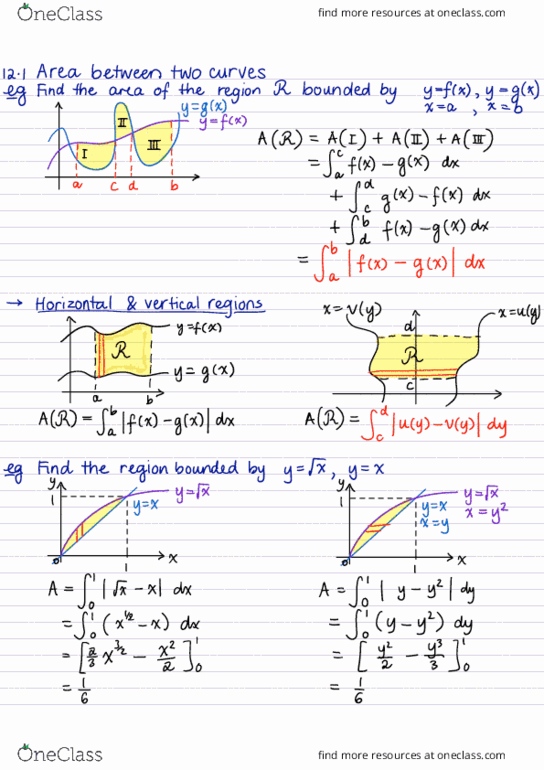 OneClass find more resources at oneclass.com
12.1 Area between two curves
eg Find the area of the region R bounded by y=f(x), y=g(x)
x=a, x=b
y=g(x)
y=f(x)
I II III
a c d b
A(R) = A(I) + A(II) + A(III)
= ∫_a^c f(x) - g(x) dx
+ ∫_c^d g(x) - f(x) dx
+ ∫_d^b f(x) - g(x) dx
= ∫_a^b |f(x) - g(x)| dx
→ Horizontal & vertical regions
y=f(x)
R
y=g(x)
a b
A(R) = ∫_a^b |f(x) - g(x)| dx
x=v(y) d x=u(y)
R
c
A(R) = ∫_c^d |u(y) - v(y)| dy
eg Find the region bounded by y=√x, y=x
y
1
y=√x
y=x
0 1 x
A = ∫_0^1 |√x - x| dx
= ∫_0^1 (x^{1/2} - x) dx
= [2/3 x^{3/2} - x²/2]_0^1
= 1/6
y
1
y=√x
x=y²
y=x
x=y
0 1 x
A = ∫_0^1 |y - y²| dy
= ∫_0^1 (y - y²) dy
= [y²/2 - y³/3]_0^1
= 1/6
OneClass find more resources at oneclass.com